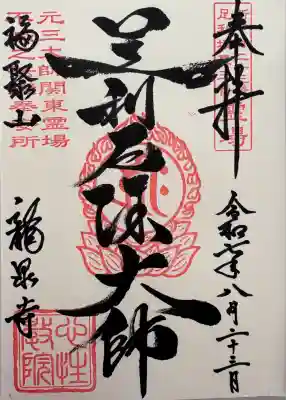 奉拝
令和七年八月二十三日
足利厄除大師
元三大師関東霊場
福聚山
龍泉寺
心性
教院